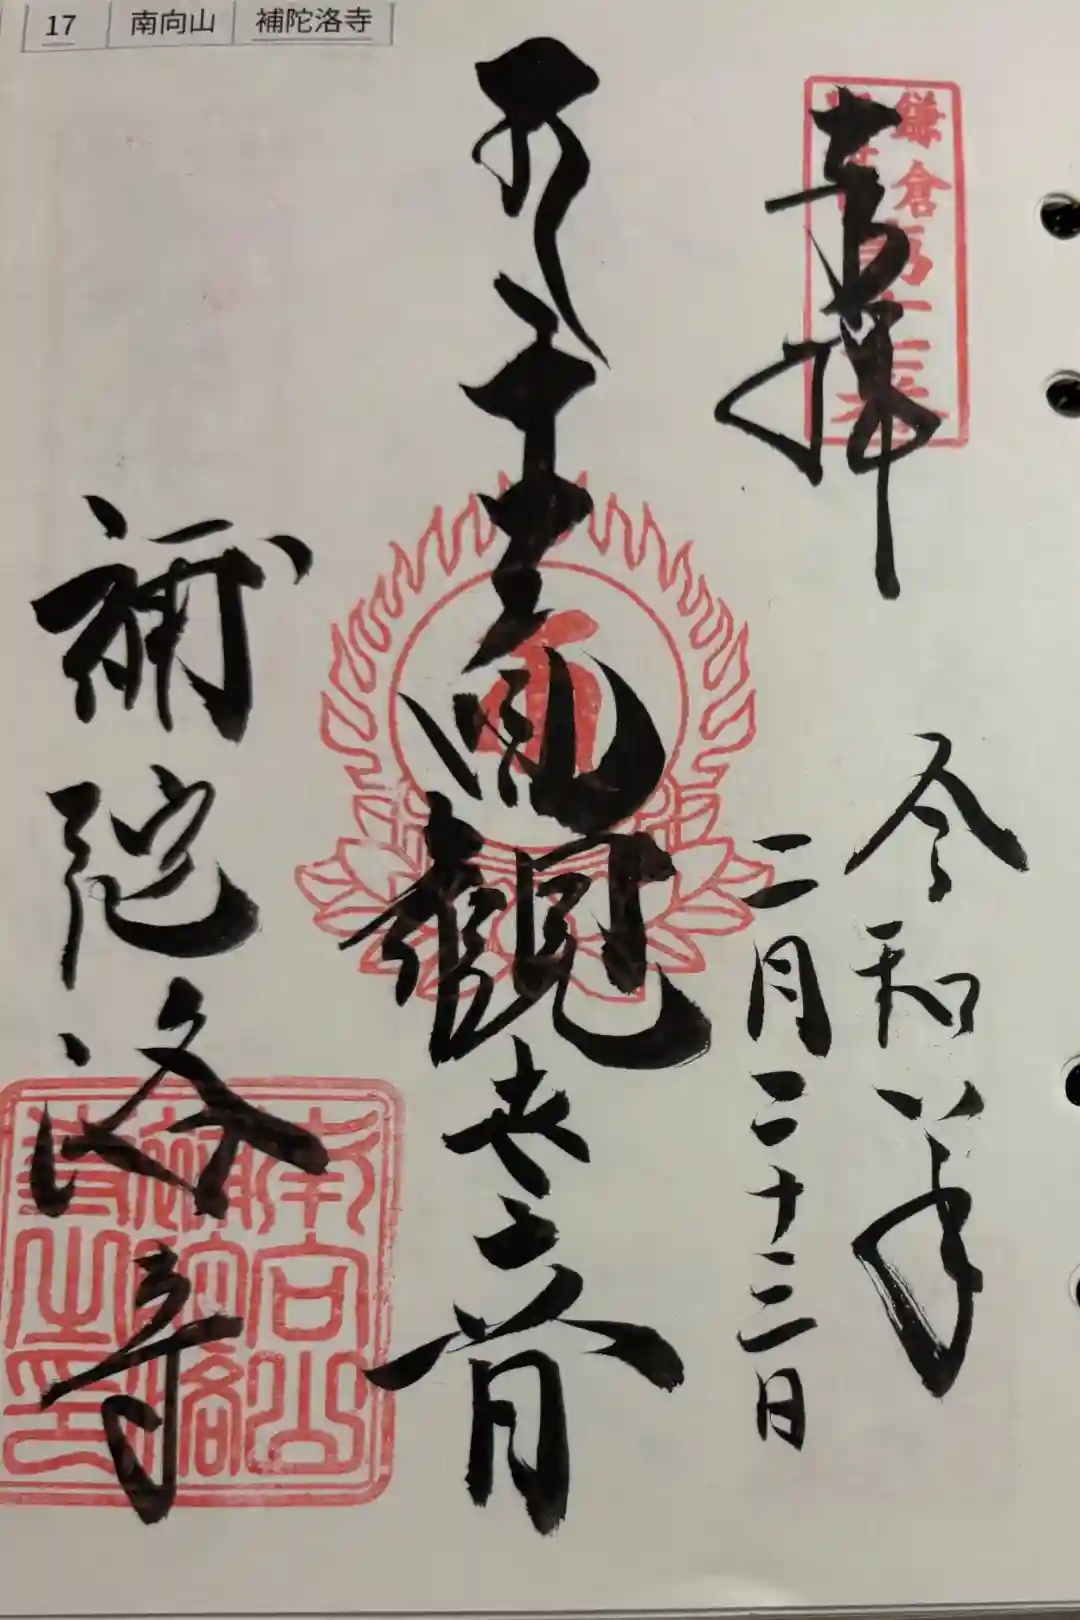 17 南向山 補陀洛寺
奉拝
鎌倉
令和八年
二月二十三日
十一面観世音
補陀洛寺
南向山
補陀洛
寺之印